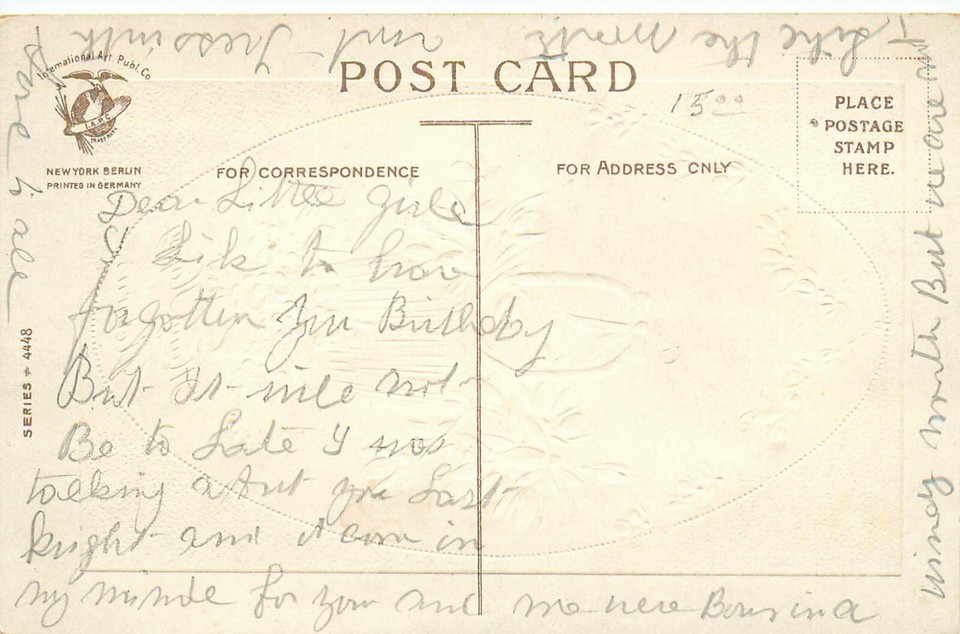 International Art Publ. Co
I.A.P.C
TRADE MARK
NEW YORK BERLIN
PRINTED IN GERMANY
POST CARD
15 00
PLACE
POSTAGE
STAMP
HERE.
FOR CORRESPONDENCE
FOR ADDRESS ONLY
SERIES # 4448
Dear Little girle
I Lik to have
forgotten You Birthday
But It wile not
Be to Late I was
talking about you Last
knight and it com in
my minde for you and me were Born in a
windy month But we are
Like the month and
Love is all